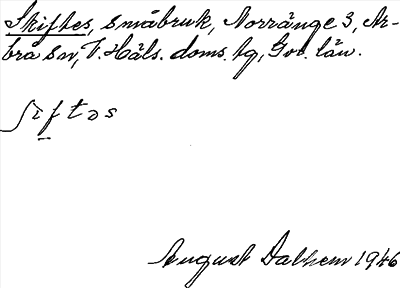 Skiftes, småbruk, Norränge 3, Ar-
bra sn, V. Häls. doms. tg, Gvl. län.
ʃɪftəs
August Dalhem 1946